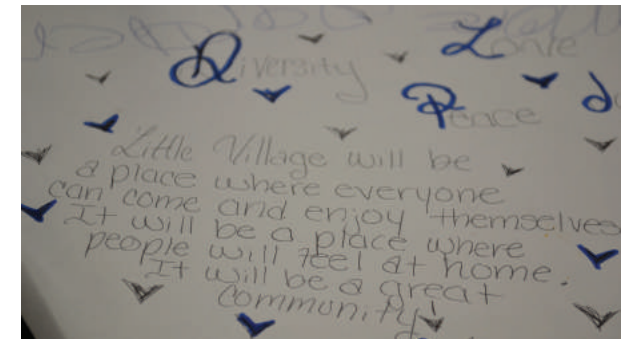 Diversity Love
Peace
Little Village will be
a place where everyone
can come and enjoy themselves
It will be a place where
people will feel at home.
It will be a great
community!